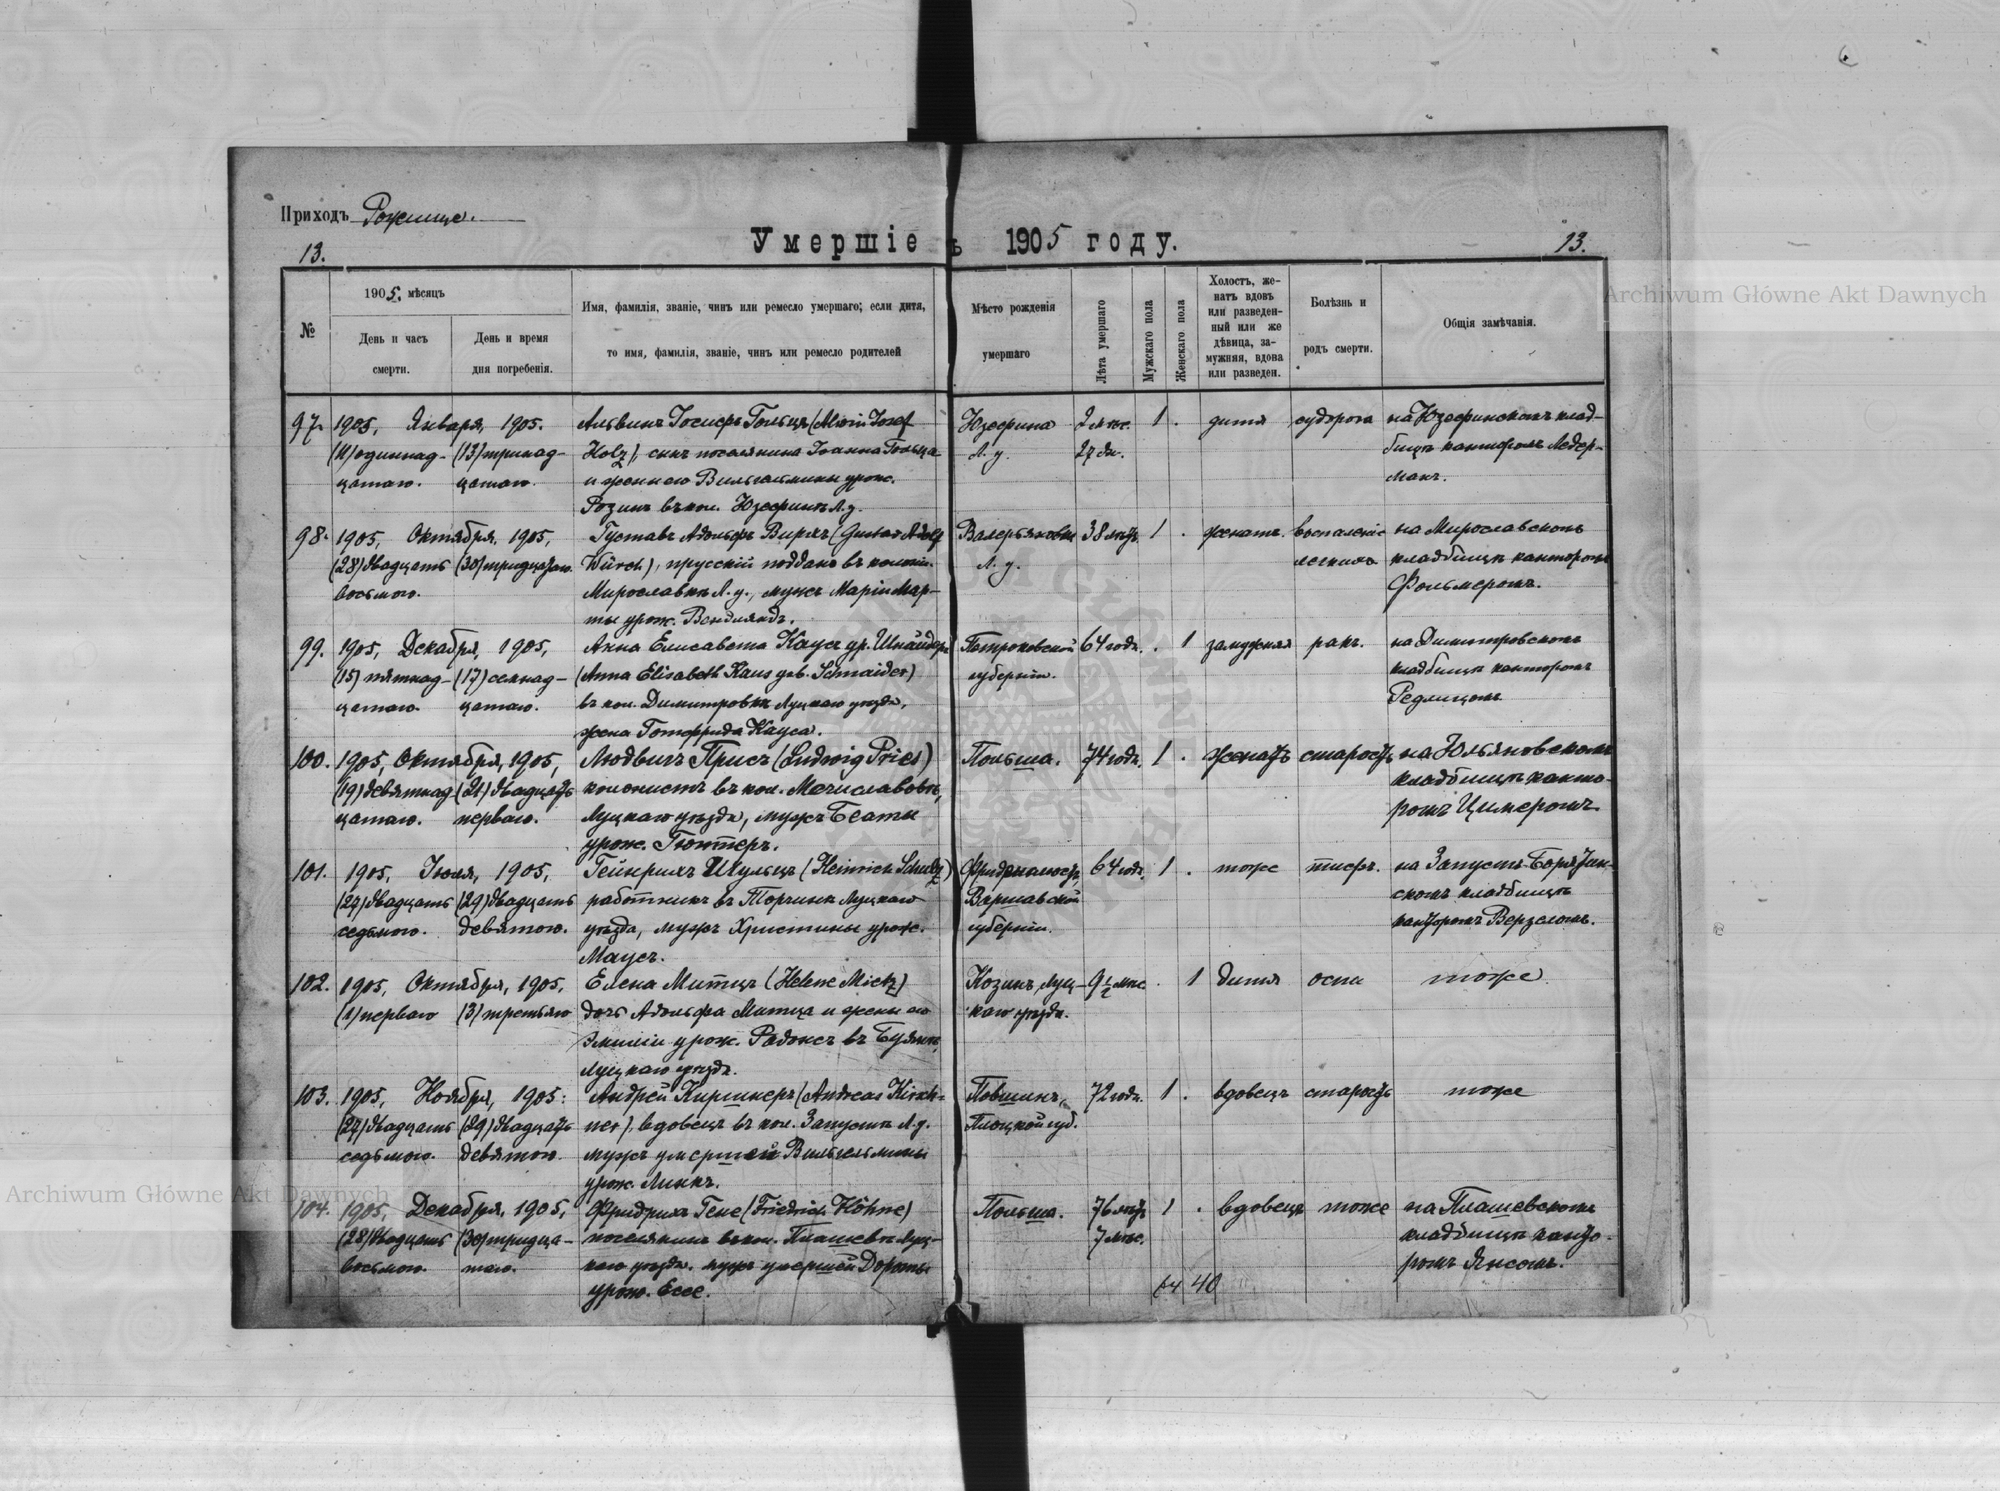 Приходъ Рожище.
13.
Умершіе въ 1905 году.
13.
№
1905. мѣсяцъ
День и часъ смерти.
День и время дня погребенія.
Имя, фамилія, званіе, чинъ или ремесло умершаго; если дитя,
то имя, фамилія, званіе, чинъ или ремесло родителей
Мѣсто рожденія
умершаго
Лѣта умершаго
Мужскаго пола
Женскаго пола
Холостъ, же-
натъ вдовъ
или разведен-
ный или же
дѣвица, за-
мужняя, вдова
или разведен.
Болѣзнь и
родъ смерти.
Общія замѣчанія.
97. 1905, Января, 1905. Альвинъ Іосифъ Гольцъ (Alwin Josef Юзефина 2 мѣс. 1 . дитя судорога на Юзефинскомъ клад-
(11) одиннад- (13) тринад- Holz), сынъ поселянина Іоанна Гольца Л. у. 27 дн. бищѣ канторомъ Ледер-
цатаго. цатаго. и жены его Вильгельмины урож. манъ.
Розинъ въ кол. Юзефинѣ Л. у.
98. 1905, Октября, 1905, Густавъ Адольфъ Вирхъ (Gustav Adolf Валерьяновка 38 лѣтъ 1 . женатъ. воспаленіе на Мирославскомъ
(28) двадцать (30) тридцатаго Würch), прусскій поддан. въ колоніи Л. у. легкихъ кладбищѣ канторомъ
восьмого. Мирославкѣ Л. у., мужъ Маріи Мар- Фольмеромъ.
ты урож. Вендляндъ.
99. 1905, Декабря, 1905, Анна Елисавета Каусъ ур. Шнайдеръ Петроковской 64 года. . 1 замужняя ракъ. на Димитровскомъ
(15) пятнад- (17) семнад- (Anna Elisabeth Kaus geb. Schnaider) губерніи. кладбищѣ канторомъ
цатаго. цатаго. въ кол. Димитровкѣ Луцкаго уѣзда, Редлицомъ.
жена Готфрида Кауса.
100. 1905, Октября, 1905, Людвигъ Присъ (Ludwig Pries) Польша. 74 года. 1 . женатъ старость на Юльяновскомъ
(19) девятнад- (21) двадцать колонистъ въ кол. Мечиславовкѣ, кладбищѣ канто-
цатаго. перваго. Луцкаго уѣзда, мужъ Беаты ромъ Цимеромъ.
урож. Гюнтеръ.
101. 1905, Іюля, 1905, Гейнрихъ Шульцъ (Heinrich Schultz) 64 года. 1 . тоже тифъ. на Запустъ-Борятин-
(27) двадцать (29) двадцать работникъ въ Торчинѣ Луцкаго Варшавской скомъ кладбищѣ
седьмого. девятого. уѣзда, мужъ Христины урож. губерніи. канторомъ Верзеломъ.
Маусъ.
102. 1905, Октября, 1905, Елена Митцъ (Helene Mietz) Козинъ, Луц- 9½ мѣс . 1 дитя оспа тоже
(1) перваго (3) третьяго дочь Адольфа Митца и жены его каго уѣзда.
Эмиліи урож. Радокъ въ
Луцкаго уѣзда.
103. 1905, Ноября, 1905. Андрей Киршнеръ (Andreas Kirsch- Повшинъ, 72 года. 1 . вдовецъ старость тоже
(27) двадцать (29) двадцать ner), вдовецъ въ кол. Запустѣ Л. у. Плоцкой губ.
седьмого. девятого. мужъ умершей Вильгельмины
урож. Линкъ.
104. 1905, Декабря, 1905, Фридрихъ Гене (Friedrich Höhne) Польша. 76 лѣтъ 1 . вдовецъ тоже на Пляшевскомъ
(28) двадцать (30) тридца- поселянинъ въ кол. Пляшевѣ Луц- 7 мѣс. кладбищѣ канто-
восьмого. таго. каго уѣзда. мужъ умершей Дороты ромъ Янсомъ.
урож. Ессе.
64 40
Archiwum Główne Akt Dawnych
Archiwum Główne Akt Dawnych